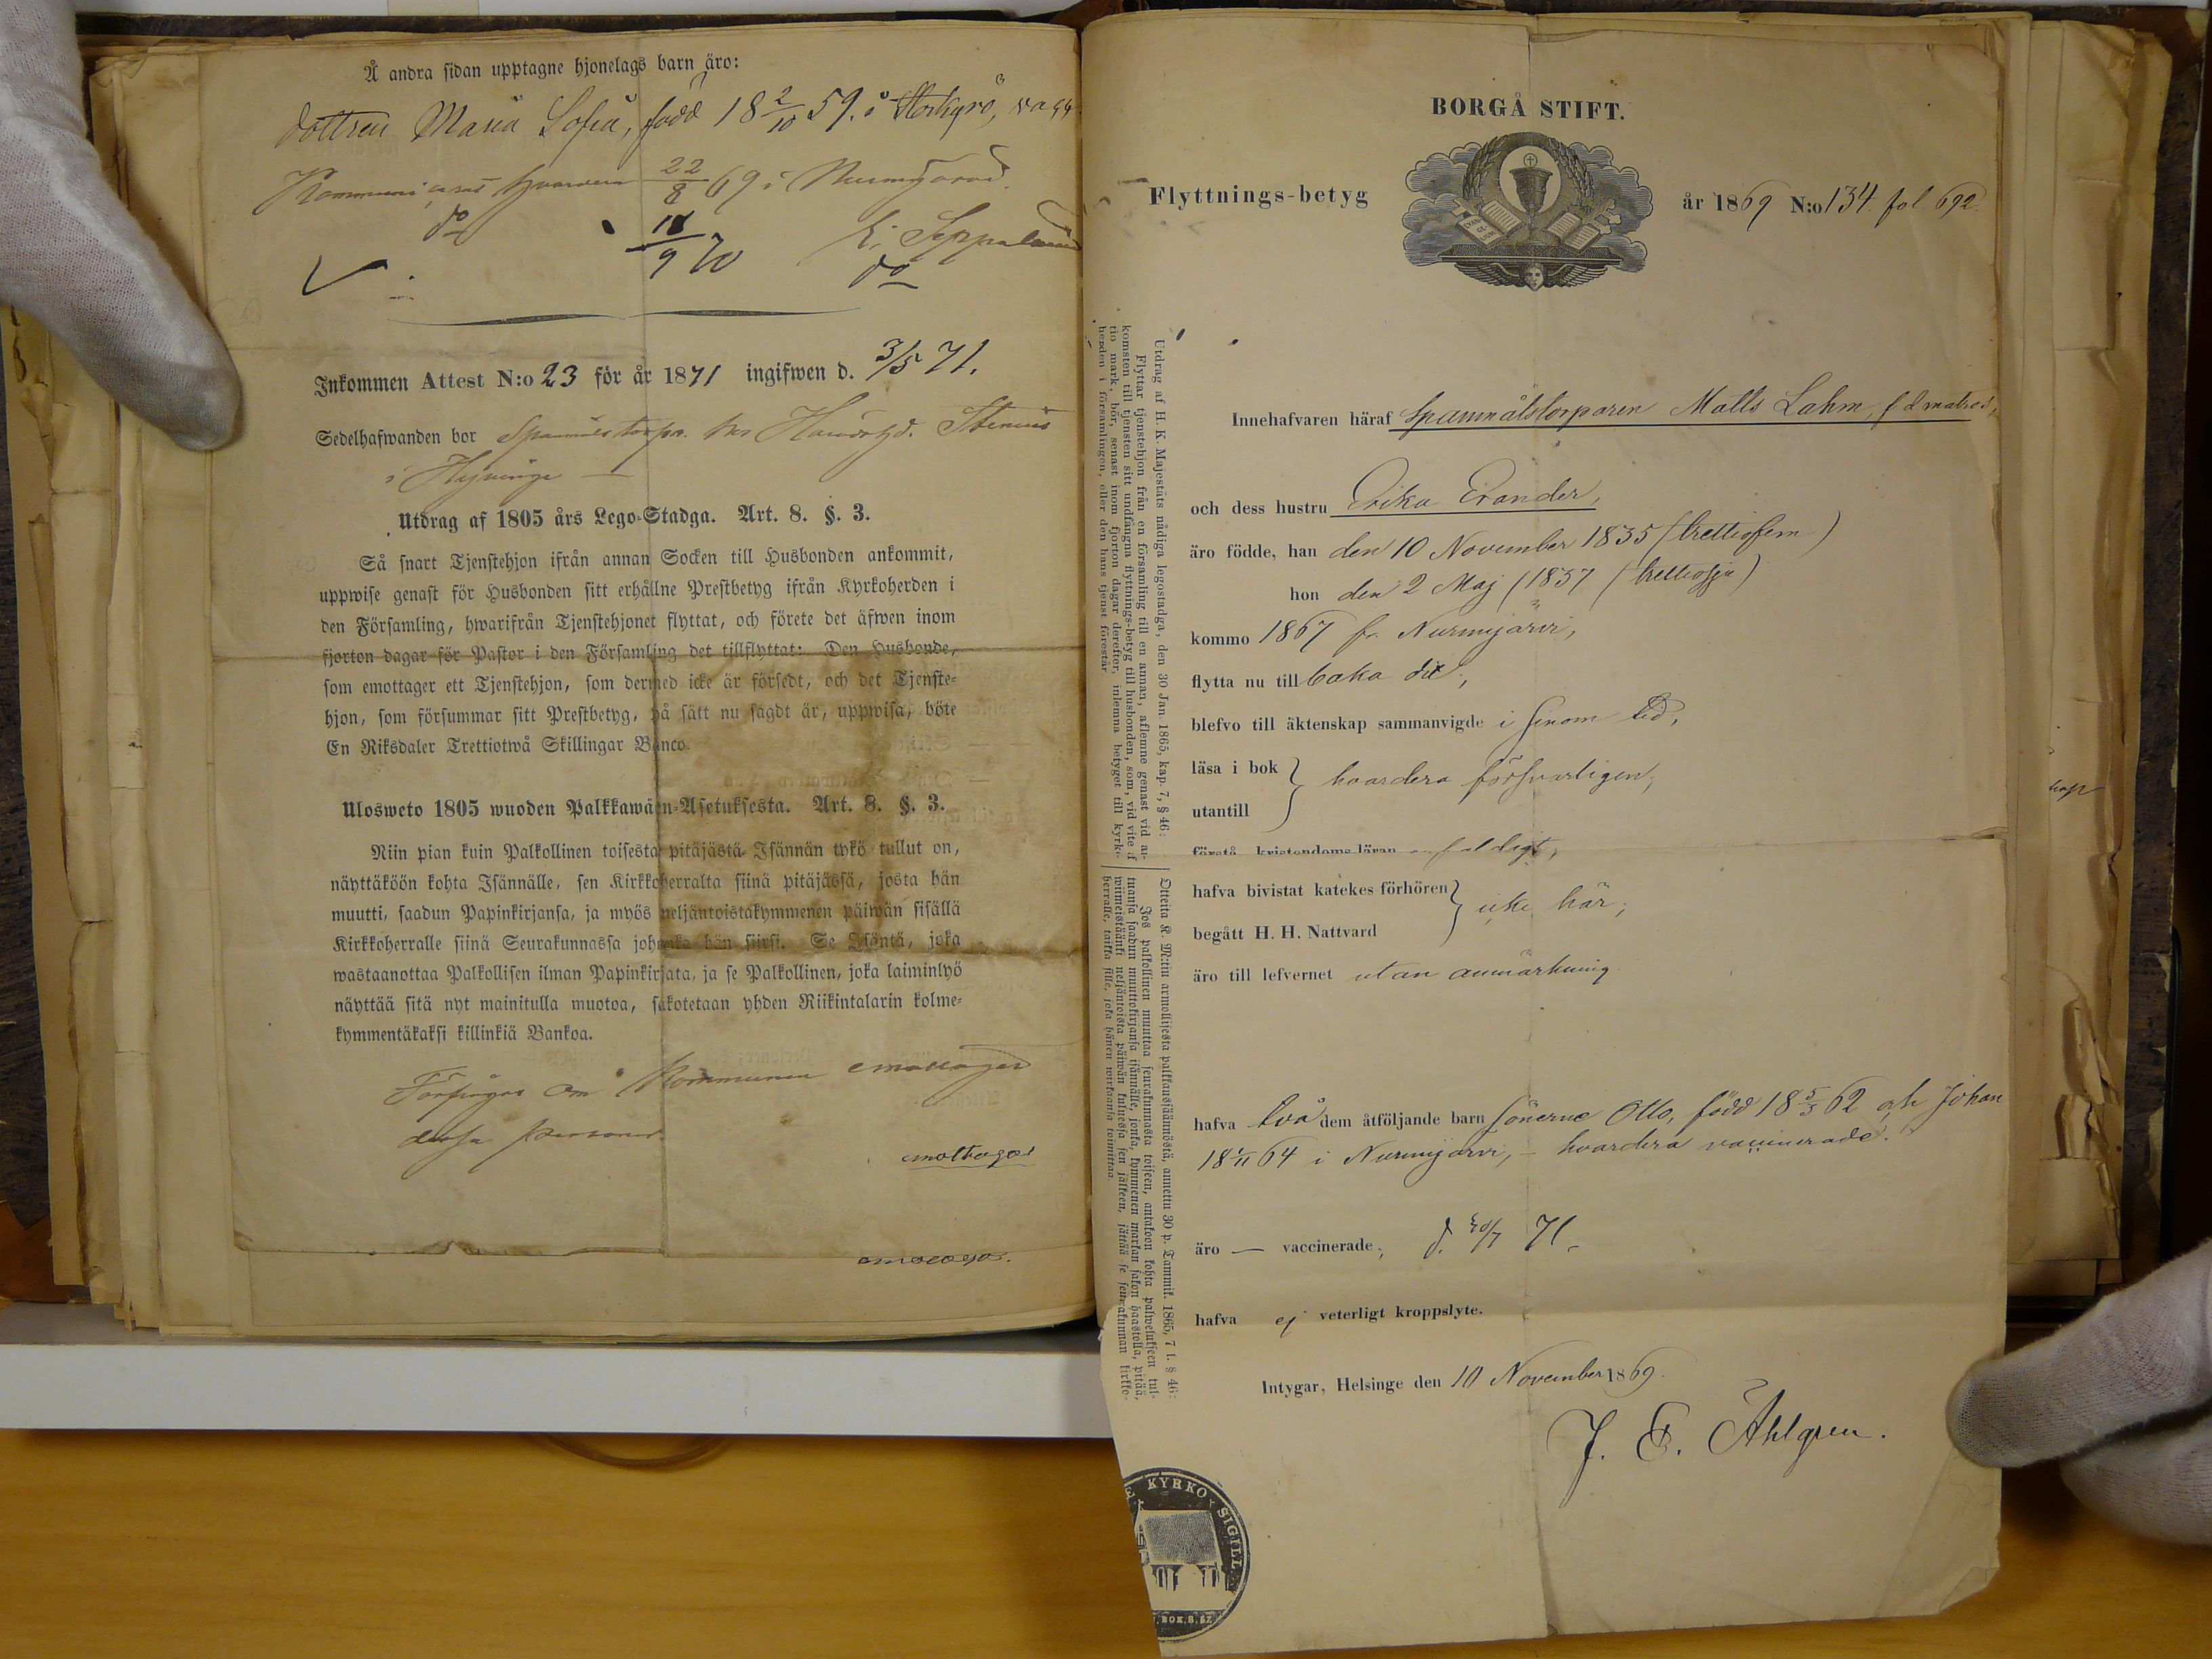 Å andra sidan upptagne hjonelags barn äro:
dottren Maria Sofia, född 18 2/10 59. i Storkyrö, vacc
22/8 69 i Nurmijärvi
do 11/9 70
do
Inkommen Attest N:o 23 för år 1871 ingifwen d. 3/5 71.
Sedelhafwanden bor Spanmåls torpa.
i Hyvinge
Utdrag af 1805 års Lego-Stadga. Art. 8. §. 3.
Så snart Tjenstehjon ifrån annan Socken till Husbonden ankommit,
uppwise genast för Husbonden sitt erhållne Prestbetyg ifrån Kyrkoherden i
den Församling, hwarifrån Tjenstehjonet flyttat, och förete det äfwen inom
fjorton dagar för Pastor i den Församling det tillflyttat: Den Husbonde,
som emottager ett Tjenstehjon, som dermed icke är försedt, och det Tjenste-
hjon, som försummar sitt Prestbetyg, på sätt nu sagdt är, uppwisa, böte
En Riksdaler Trettiotwå Skillingar Banco.
Ulosweto 1805 wuoden Palkkawäen-Asetuksesta. Art. 8. §. 3.
Niin pian kuin Palkollinen toisesta pitäjästä Isännän tykö tullut on,
näyttäköön kohta Isännälle, sen Kirkkoherralta siinä pitäjässä, josta hän
muutti, saadun Papinkirjansa, ja myös neljäntoistakymmenen päiwän sisällä
Kirkkoherralle siinä Seurakunnassa johonka hän siirsi. Se Isäntä, joka
wastaanottaa Palkollisen ilman Papinkirjata, ja se Palkollinen, joka laiminlyö
näyttää sitä nyt mainitulla muotoa, sakotetaan yhden Riikintalarin kolme-
kymmentäkaksi killinkiä Bankoa.
Förfrågas om Kommunen emottager
dessa personer.
emottages
BORGÅ STIFT.
Flyttnings-betyg år 1869 N:o 134 fol 692.
Innehafvaren häraf Spanmålstorparen Matts Lahm, f d matros,
och dess hustru Erika Erander,
äro födde, han den 10 November 1835 (trettiofem)
hon den 2 Maj 1837 (trettiosju)
kommo 1867 fr. Nurmijärvi,
flytta nu till baka dit,
blefvo till äktenskap sammanvigde i sinom tid,
läsa i bok } hvardera försvarligen,
utantill
förstå kristendoms-läran enfaldigt,
hafva bivistat katekes-förhören } icke här,
begått H. H. Nattvard
äro till lefvernet utan anmärkning
hafva två dem åtföljande barn sönerne Otto, född 18 5/3 62 och Johan
18 1/11 64 i Nurmijärvi, – hvardera vaccinerade.
äro — vaccinerade;
hafva ej veterligt kroppslyte.
Intygar, Helsinge den 10 November 1869.
J. E. Ahlgren.
Utdrag af H. K. Majestäts nådiga legostadga, den 30 Jan. 1865, kap. 7, § 46:
Flyttar tjenstehjon från en församling till en annan, aflemne genast vid an-
komsten till tjensten sitt undfångna flyttnings-betyg till husbonden, som, vid vite af
tio mark, bör, senast inom fjorton dagar derefter, inlemna betyget till kyrko-
herden i församlingen, eller den hans tjenst förestår.
Otteita K. M:tin armollisesta palkkaussäännöstä, annettu 30 p. Tammik. 1865, 7 l. § 46:
Jos palkollinen muuttaa seurakunnasta toiseen, antakoon kohta palwelukseen tul-
tuansa saadun muuttokirjansa isännälle, jonka kymmenen markan sakon haastolla, pitää,
wiimeistäänki neljäntoista päiwän kuluessa sen jälkeen, jättää se seurakunnan kirkko-
herralle, taikka sille, joka hänen wirkaansa toimittaa.
KYRKO SIGILL